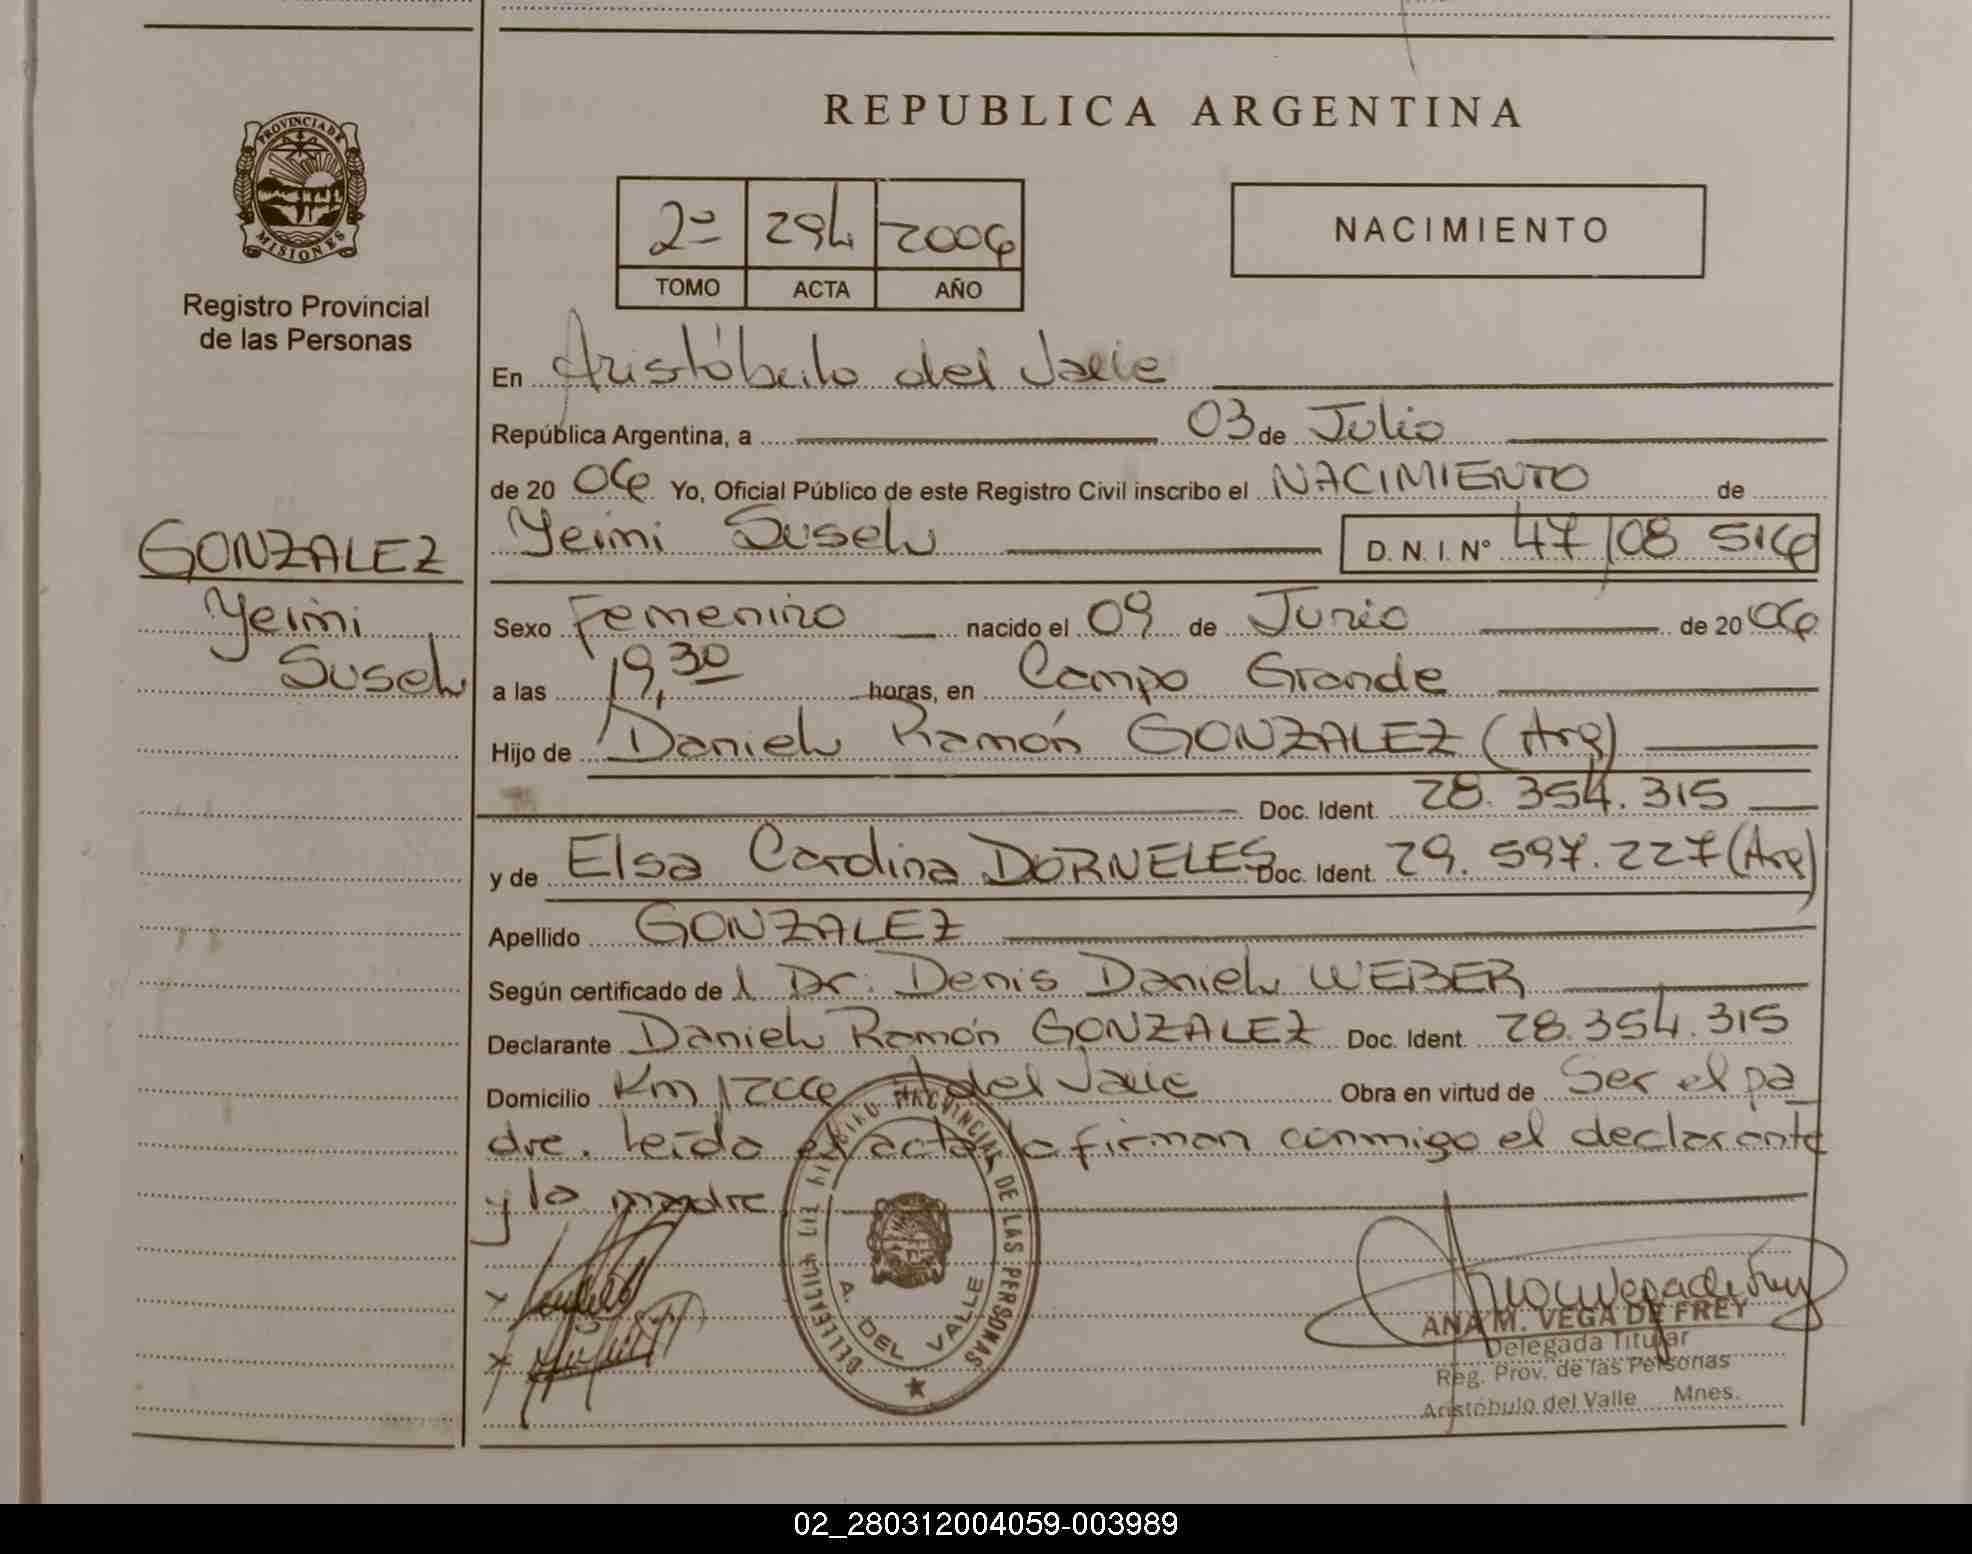 REPUBLICA ARGENTINA
PROVINCIA DE
MISIONES
Registro Provincial
de las Personas
2º 294 2006
TOMO ACTA AÑO
NACIMIENTO
En Aristóbulo del Valle
República Argentina, a 03 de Julio
de 20 06 Yo, Oficial Público de este Registro Civil inscribo el NACIMIENTO de
Yeimi Susel D. N. I. Nº 47 108 516
GONZALEZ
Yeimi
Susel
Sexo Femenino nacido el 09 de Junio de 20 06
a las 19,30 horas, en Campo Grande
Hijo de Daniel Ramón GONZALEZ (Arg)
Doc. Ident. 28.354.315
y de Elsa Cardina DORNELES Doc. Ident. 29.597.227 (Arg)
Apellido GONZALEZ
Según certificado de l Dr. Denis Daniel WEBER
Declarante Daniel Ramón GONZALEZ Doc. Ident. 28.354.315
Domicilio Km 1266 A del Valle Obra en virtud de Ser el pa
dre. Leída el acta, la firman conmigo el declarante
y la madre
PROVINCIAL DE LAS PERSONAS
A. DEL VALLE
ANA M. VEGA DE FREY
Delegada Titular
Reg. Prov. de las Personas
Aristóbulo del Valle Mnes.
02_280312004059-003989